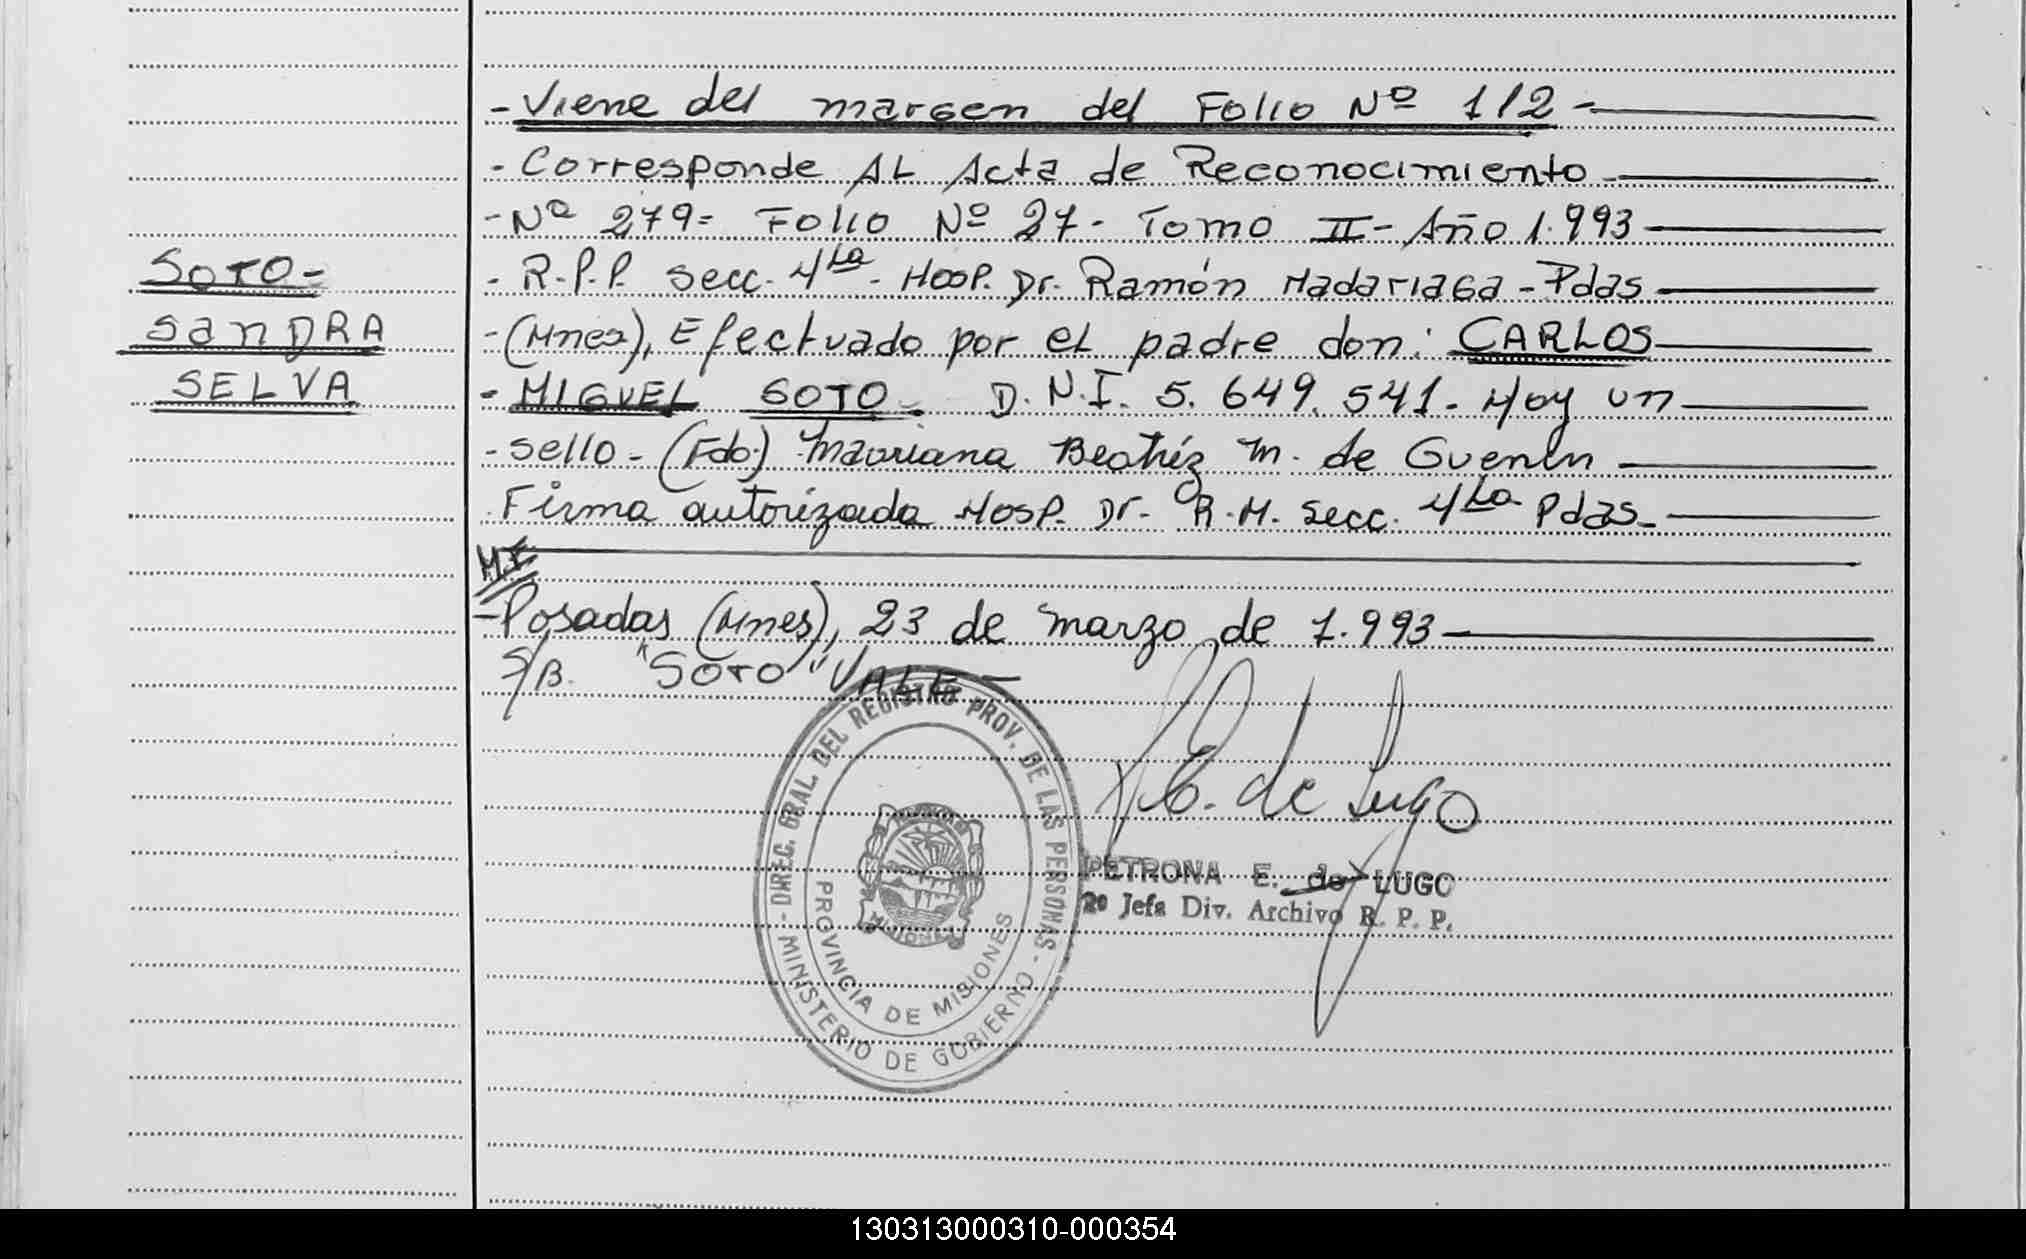 -Viene del margen del Folio Nº 112-
-Corresponde AL Acta de Reconocimiento-
-Nº 279= Folio Nº 27- Tomo II- Año 1.993
SOTO-
- R.P.P. secc. 4ta- Hosp. Dr. Ramón Madariaga-Pdas
SanDRA
-(Mnes), Efectuado por el padre don: CARLOS
SELVA
-MIGUEL SOTO. D.N.I. 5.649.541. Hoy un
-sello-(Fdo.) Mauriana Beatríz M. de Guenin
Firma autorizada Hosp. Dr. R.M. secc. 4ta Pdas.-
MI
-Posadas (Mnes), 23 de marzo de 1.993-
S/B. "SOTO" VALE-
P.E. de Lugo
- DIREC. GRAL. DEL REGISTRO PROV. DE LAS PERSONAS -
MISIONES
PROVINCIA DE MISIONES
MINISTERIO DE GOBIERNO
PETRONA E. de LUGO
2º Jefa Div. Archivo R. P. P.
130313000310-000354